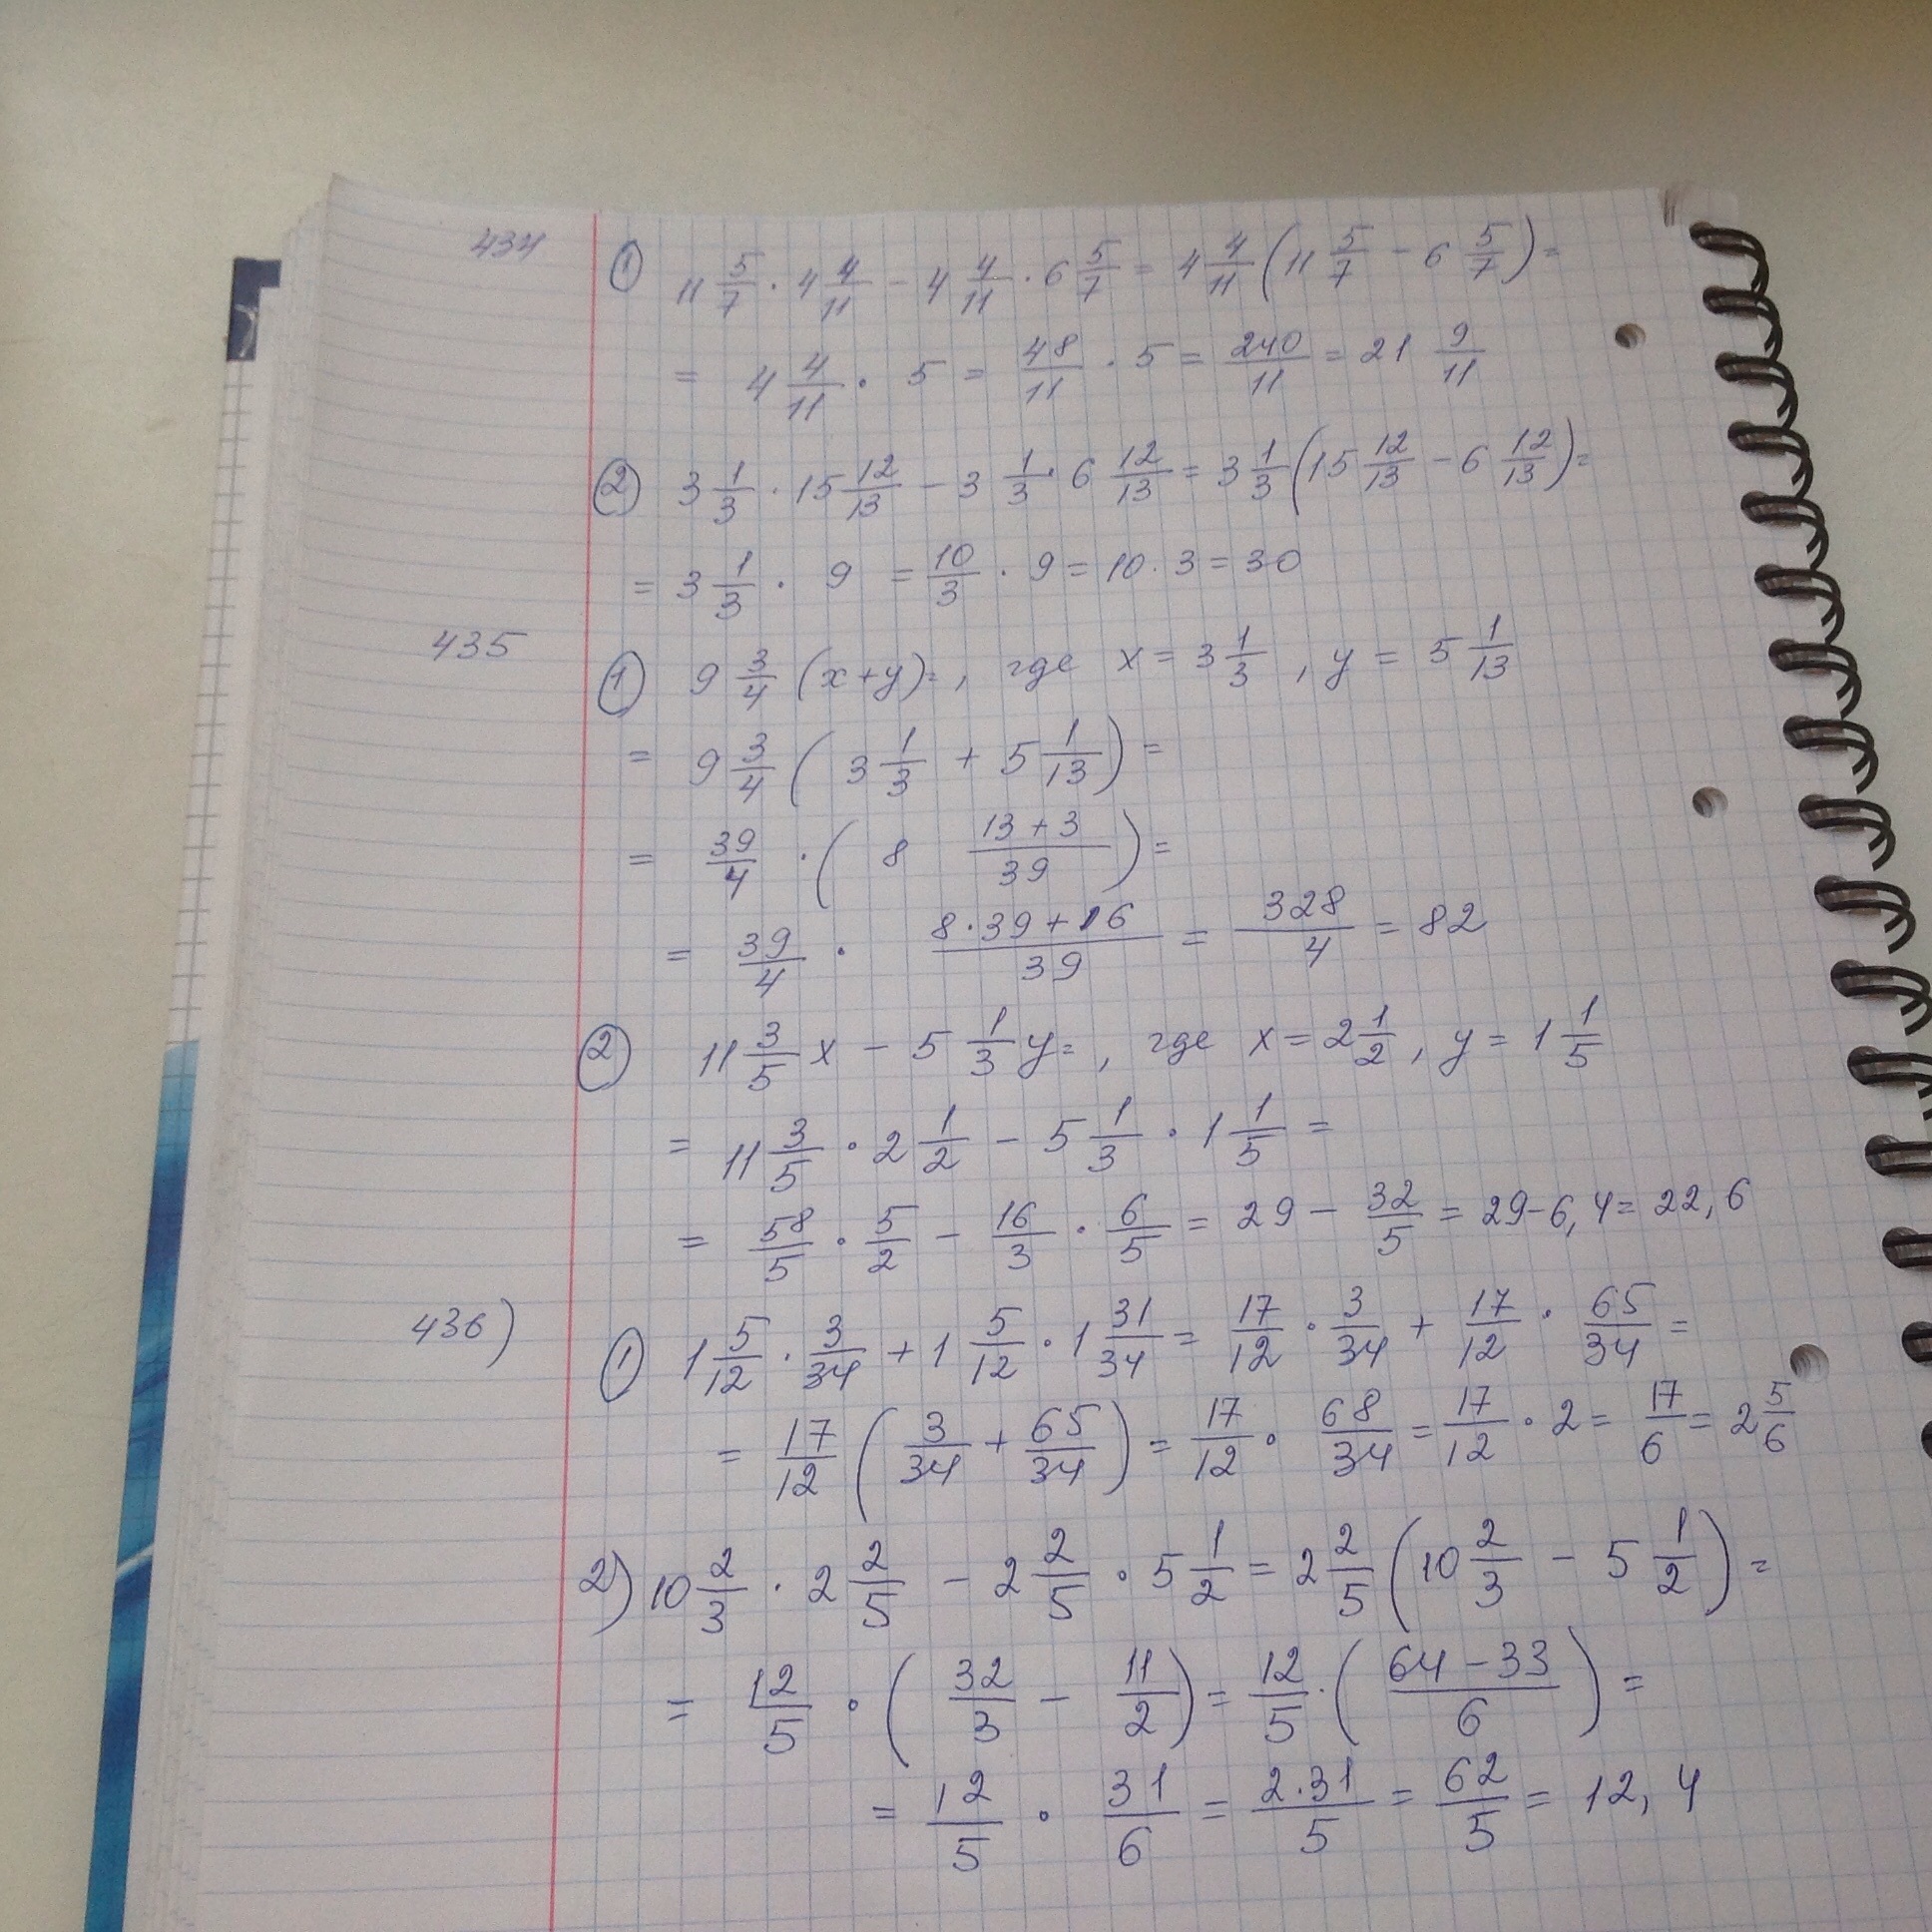 434
① 11 5/7 · 4 4/11 - 4 4/11 · 6 5/7 = 4 4/11 (11 5/7 - 6 5/7) =
= 4 4/11 · 5 = 48/11 · 5 = 240/11 = 21 9/11
② 3 1/3 · 15 12/13 - 3 1/3 · 6 12/13 = 3 1/3 (15 12/13 - 6 12/13) =
= 3 1/3 · 9 = 10/3 · 9 = 10 · 3 = 30
435
① 9 3/4 (x+y) =, где x = 3 1/3, y = 5 1/13
= 9 3/4 (3 1/3 + 5 1/13) =
= 39/4 · (8 (13+3)/39) =
= 39/4 · (8·39+16)/39 = 328/4 = 82
② 11 3/5 x - 5 1/3 y =, где x = 2 1/2, y = 1 1/5
= 11 3/5 · 2 1/2 - 5 1/3 · 1 1/5 =
= 58/5 · 5/2 - 16/3 · 6/5 = 29 - 32/5 = 29-6,4 = 22,6
436)
① 1 5/12 · 3/34 + 1 5/12 · 1 31/34 = 17/12 · 3/34 + 17/12 · 65/34 =
= 17/12 (3/34 + 65/34) = 17/12 · 68/34 = 17/12 · 2 = 17/6 = 2 5/6
2) 10 2/3 · 2 2/5 - 2 2/5 · 5 1/2 = 2 2/5 (10 2/3 - 5 1/2) =
= 12/5 · (32/3 - 11/2) = 12/5 · ((64-33)/6) =
= 12/5 · 31/6 = 2·31/5 = 62/5 = 12,4